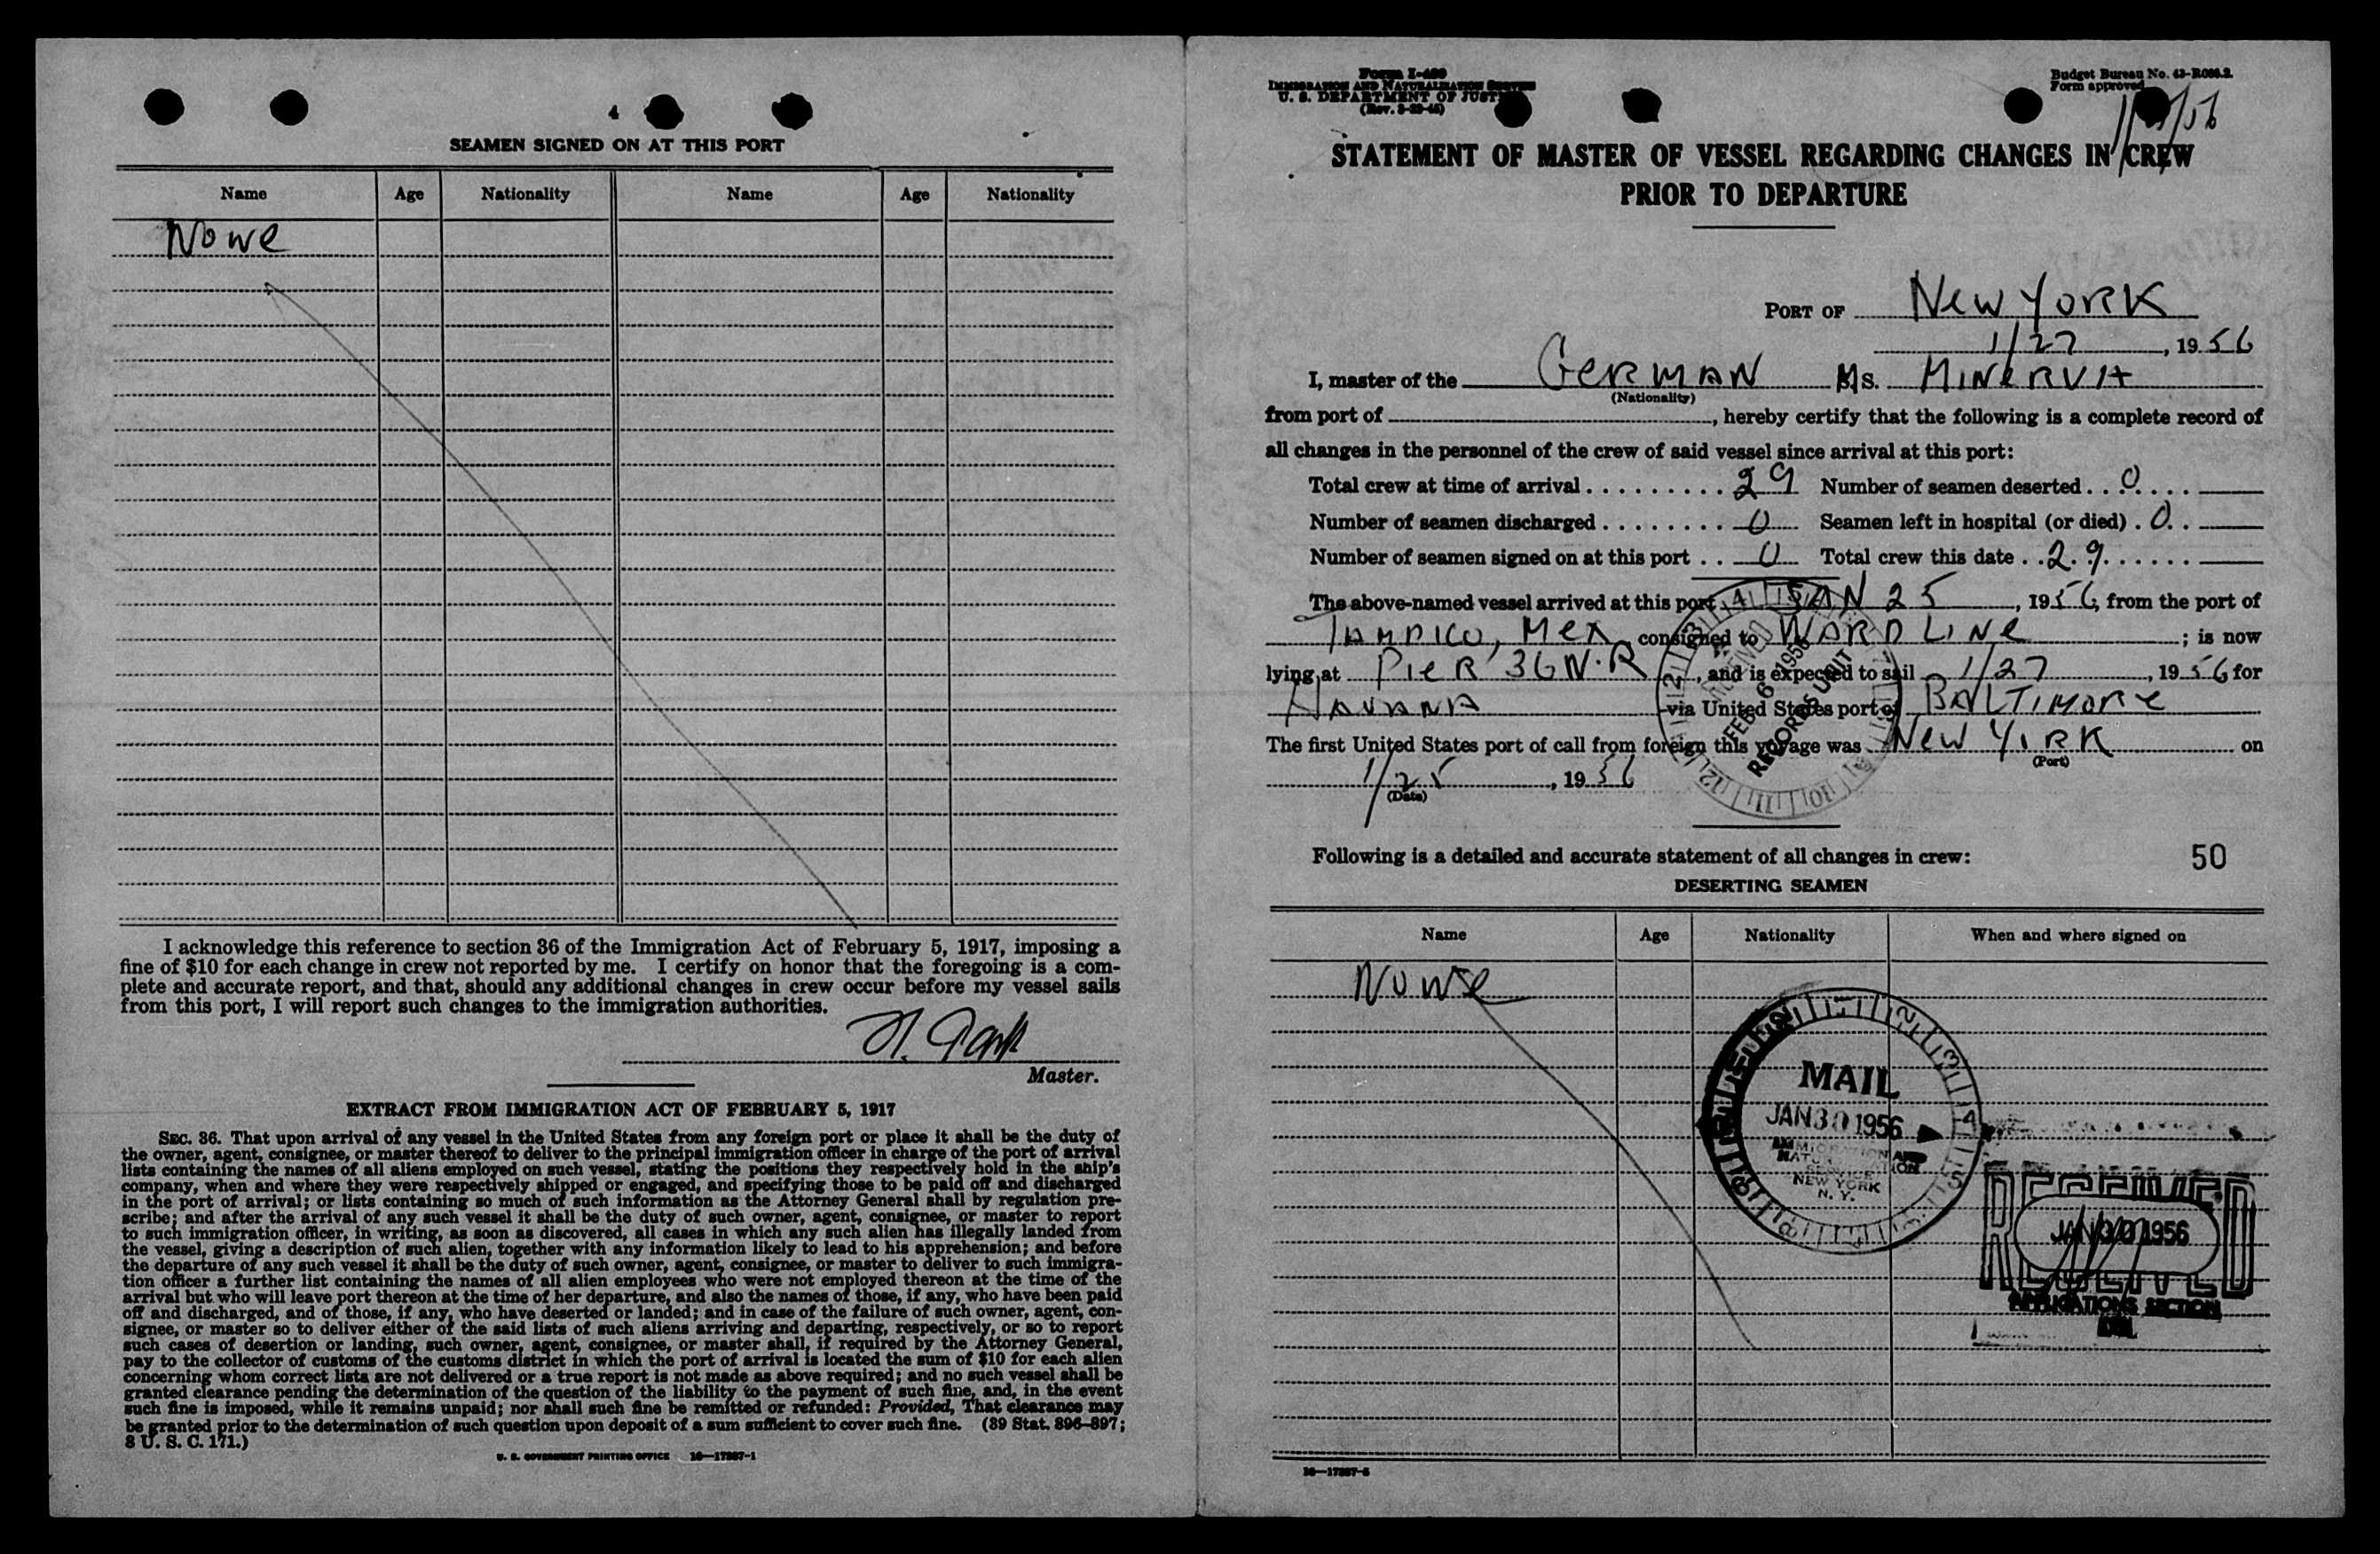 4
SEAMEN SIGNED ON AT THIS PORT
Name Age Nationality Name Age Nationality
None
I acknowledge this reference to section 36 of the Immigration Act of February 5, 1917, imposing a
fine of $10 for each change in crew not reported by me. I certify on honor that the foregoing is a com-
plete and accurate report, and that, should any additional changes in crew occur before my vessel sails
from this port, I will report such changes to the immigration authorities.
Master.
EXTRACT FROM IMMIGRATION ACT OF FEBRUARY 5, 1917
SEC. 36. That upon arrival of any vessel in the United States from any foreign port or place it shall be the duty of
the owner, agent, consignee, or master thereof to deliver to the principal immigration officer in charge of the port of arrival
lists containing the names of all aliens employed on such vessel, stating the positions they respectively hold in the ship's
company, when and where they were respectively shipped or engaged, and specifying those to be paid off and discharged
in the port of arrival; or lists containing so much of such information as the Attorney General shall by regulation pre-
scribe; and after the arrival of any such vessel it shall be the duty of such owner, agent, consignee, or master to report
to such immigration officer, in writing, as soon as discovered, all cases in which any such alien has illegally landed from
the vessel, giving a description of such alien, together with any information likely to lead to his apprehension; and before
the departure of any such vessel it shall be the duty of such owner, agent, consignee, or master to deliver to such immigra-
tion officer a further list containing the names of all alien employees who were not employed thereon at the time of the
arrival but who will leave port thereon at the time of her departure, and also the names of those, if any, who have been paid
off and discharged, and of those, if any, who have deserted or landed; and in case of the failure of such owner, agent, con-
signee, or master so to deliver either of the said lists of such aliens arriving and departing, respectively, or so to report
such cases of desertion or landing, such owner, agent, consignee, or master shall, if required by the Attorney General,
pay to the collector of customs of the customs district in which the port of arrival is located the sum of $10 for each alien
concerning whom correct lists are not delivered or a true report is not made as above required; and no such vessel shall be
granted clearance pending the determination of the question of the liability to the payment of such fine, and, in the event
such fine is imposed, while it remains unpaid; nor shall such fine be remitted or refunded: Provided, That clearance may
be granted prior to the determination of such question upon deposit of a sum sufficient to cover such fine. (39 Stat. 896-897;
8 U. S. C. 171.)
U. S. GOVERNMENT PRINTING OFFICE 16—17287-1
IMMIGRATION AND NATURALIZATION SERVICE
U. S. DEPARTMENT OF JUSTICE
Budget Bureau No.
Form approved
STATEMENT OF MASTER OF VESSEL REGARDING CHANGES IN CREW
PRIOR TO DEPARTURE
PORT OF New York
1/27, 1956
I, master of the German Ms. Minerva
(Nationality)
from port of , hereby certify that the following is a complete record of
all changes in the personnel of the crew of said vessel since arrival at this port:
Total crew at time of arrival 29 Number of seamen deserted 0
Number of seamen discharged 0 Seamen left in hospital (or died) 0
Number of seamen signed on at this port 0 Total crew this date 29
The above-named vessel arrived at this port Jan 25, 1956, from the port of
Tampico, Mex consigned to Ward Line ; is now
lying at Pier 36 N.R, and is expected to sail 1/27, 1956 for
Havana via United States port of Baltimore
The first United States port of call from foreign this voyage was New York on
(Port)
1/25, 1956
(Date)
RECEIVED
FEB 6 1956
RECORDS UNIT
Following is a detailed and accurate statement of all changes in crew: 50
DESERTING SEAMEN
Name Age Nationality When and where signed on
None
MAIL
JAN 30 1956
IMMIGRATION AND
NATURALIZATION
SERVICE
NEW YORK
N. Y.
RECEIVED
JAN 30 1956
RECEIVED
APPLICATIONS SECTION